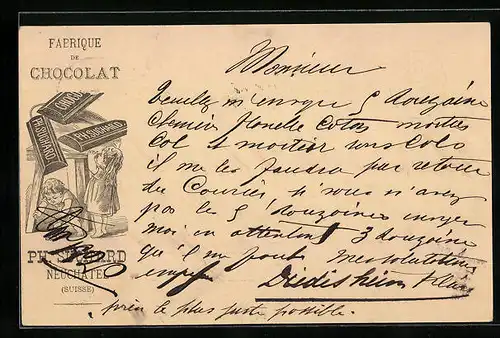 FABRIQUE
DE
CHOCOLAT
CHOCOLAT
PH. SUCHARD
PH. SUCHARD
PH. SUCHARD
NEUCHATEL
(SUISSE)
Monsieur
Veuillez m'envoyer 5 douzaine
Chemise flanelle Coton moitié
Col et moitier sans Cols
il me les faudra par retour
du Courier si vous n'avez
pas les 5 douzaines envoyer
moi en attendant 3 douzaine
qu'il me faut Mes salutations
Diedisheim
prix le plus juste possible.